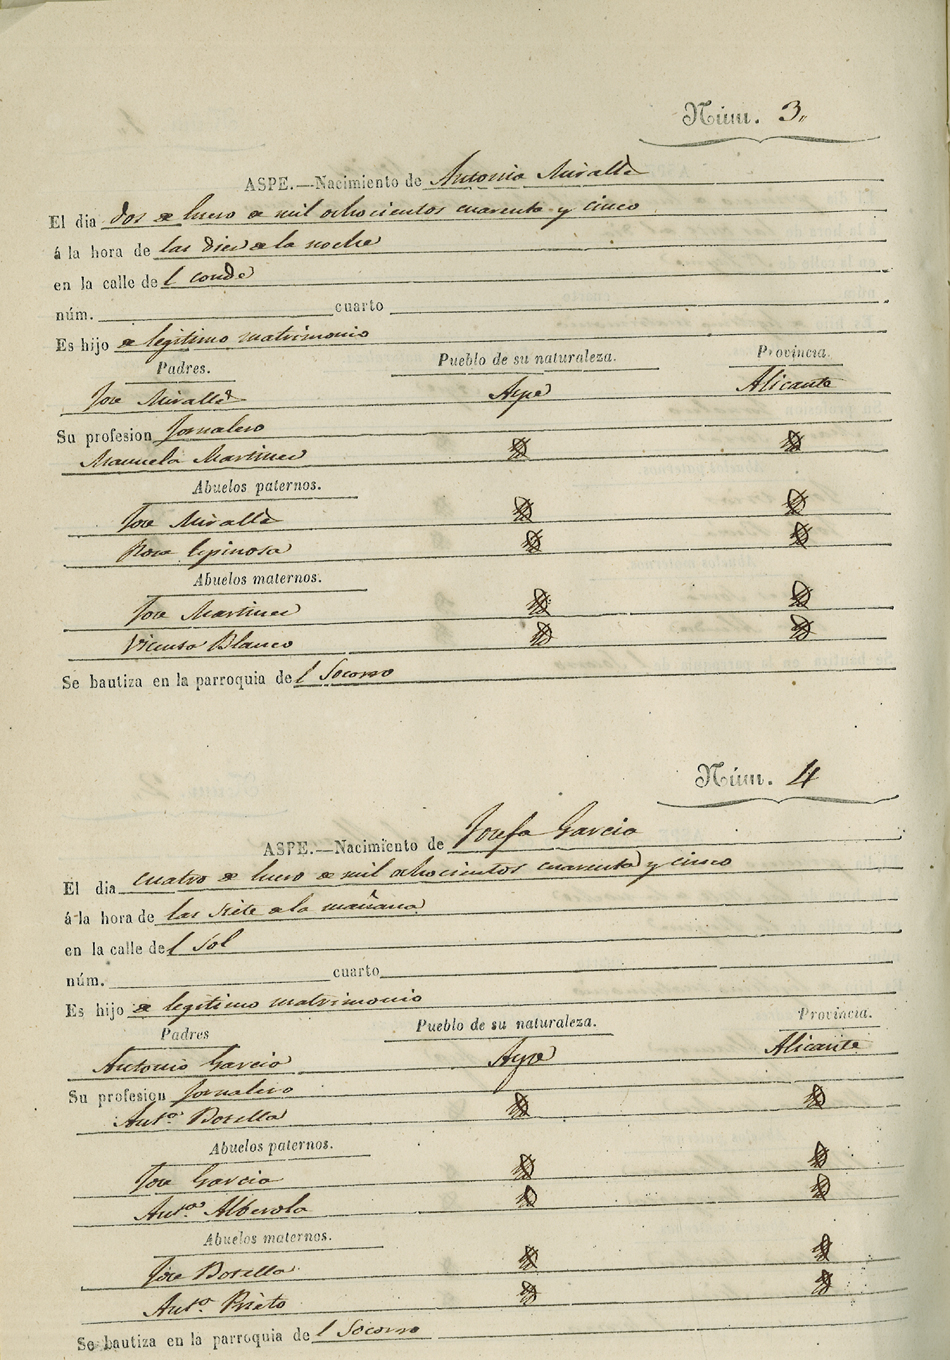 Núm. 3.
ASPE.—Nacimiento de Antonia Miralle
El dia dos de Enero de mil ochocientos cuarenta y cinco
á la hora de las diez de la noche
en la calle del conde
núm. cuarto
Es hijo de legitimo matrimonio
Padres. Pueblo de su naturaleza. Provincia.
Jose Miralle Aspe Alicante
Su profesion Jornalero
Manuela Martinez
Abuelos paternos.
Jose Miralle
Rosa Espinosa
Abuelos maternos.
Jose Martinez
Vicenta Blanco
Se bautiza en la parroquia del Socorro
Núm. 4
ASPE.—Nacimiento de Josefa Garcia
El dia cuatro de Enero de mil ochocientos cuarenta y cinco
á la hora de las siete de la mañana
en la calle del Sol
núm. cuarto
Es hijo de legitimo matrimonio
Padres Pueblo de su naturaleza. Provincia.
Antonio Garcia Aspe Alicante
Su profesion Jornalero
Antª Botella
Abuelos paternos.
Jose Garcia
Antª Alberola
Abuelos maternos.
Jose Botella
Antª Prieto
Se bautiza en la parroquia del Socorro